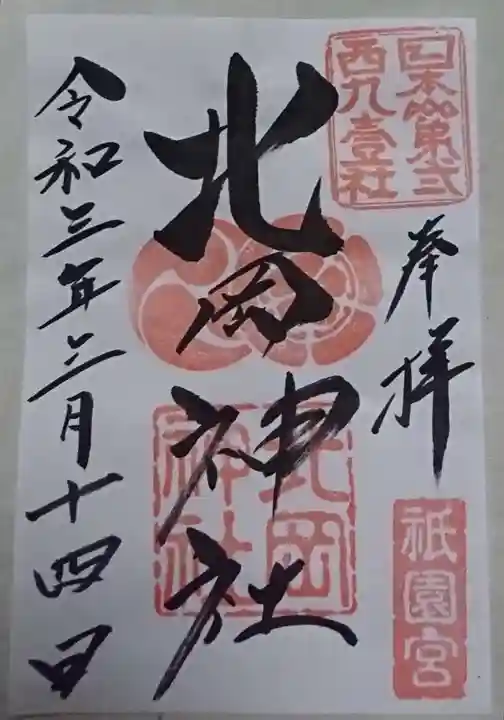 西九壹社
奉拝
祇園宮
北岡神社
北岡
神社
令和三年三月十四日